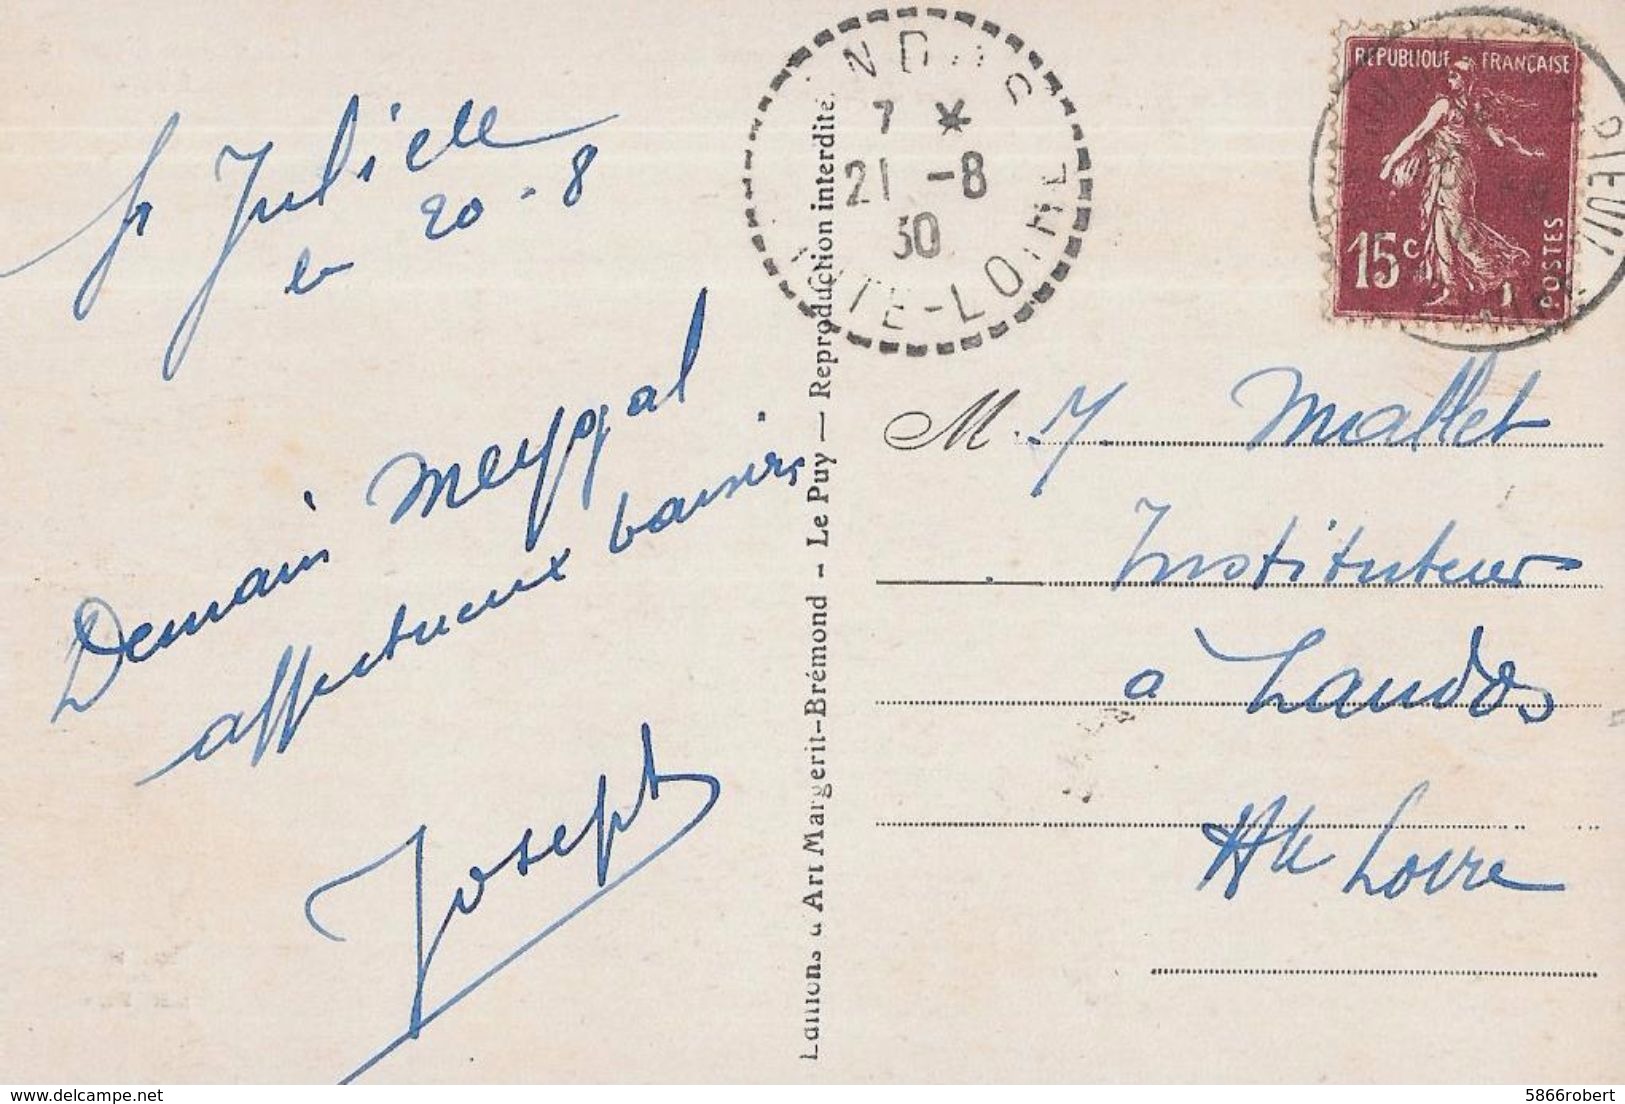 St Julien
le 20-8
Demain Meygal
affectueux baisers
Joseph
Editions d'Art Margerit-Brémond - Le Puy — Reproduction interdite.
7 *
21 -8
30
HTE-LOIRE
REPUBLIQUE FRANÇAISE
15c
POSTES
M. J. Mallet
Instituteur
à Landos
Hte Loire
delcampe.net
5866robert